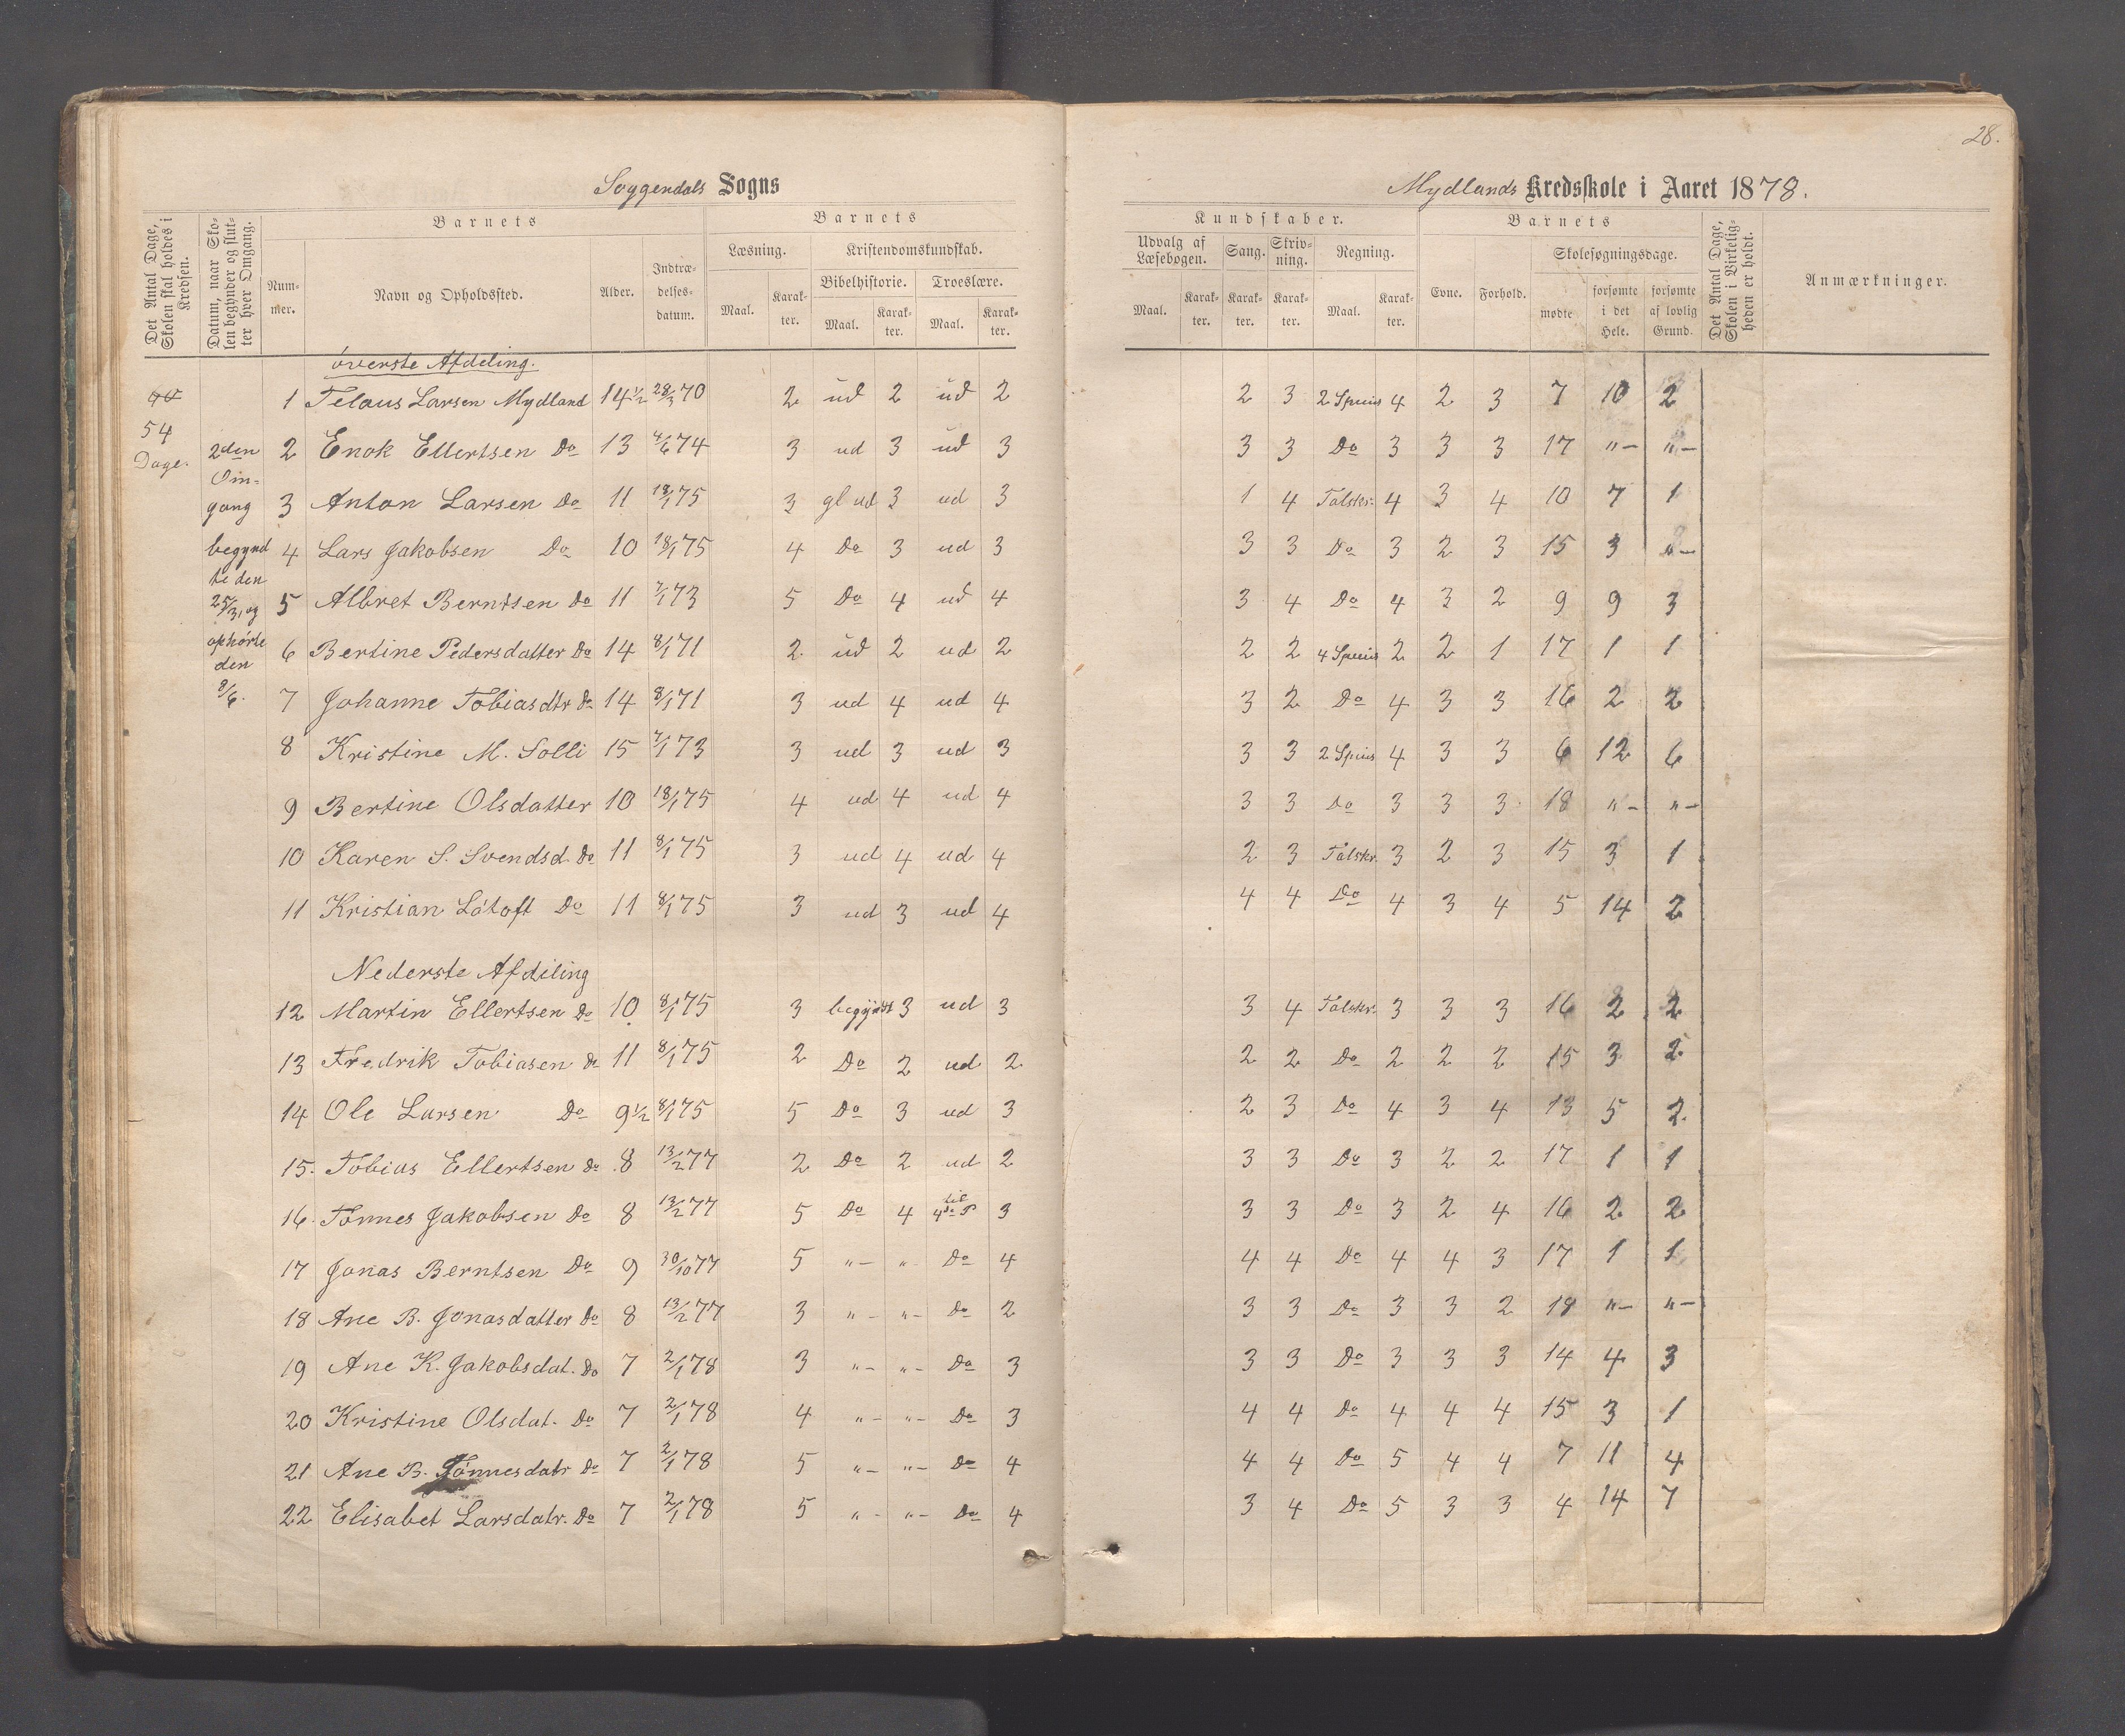 28.
Soggendals Sogns
Mydlands Kredsskole i Aaret 1878.
Det Antal Dage, Skolen skal holdes i Kredsen.
Datum, naar Skolen begynder og slutter hver Omgang.
Barnets
Nummer.
Navn og Opholdssted.
Alder.
Indtrædelsesdatum.
Barnets
Læsning.
Kristendomskundskab.
Bibelhistorie.
Troeslære.
Maal.
Karakter.
Maal.
Karakter.
Maal.
Karakter.
Kundskaber.
Udvalg af Læsebogen.
Sang.
Skrivning.
Regning.
Maal.
Karakter.
Karakter.
Karakter.
Maal.
Karakter.
Barnets
Evne.
Forhold.
Skolesøgningsdage.
mødte
forsømte i det Hele.
forsømte af lovlig Grund.
Det Antal Dage, Skolen i Virkeligheden er holdt.
Anmærkninger.
54
Dage.
2den
Om-
gang
begynd
te den
25/3, og
ophørte
den
8/6.
øverste Afdeling.
1 Telaus Larsen Mydland 14 1/2 28/3 70 2 ud 2 ud 2 2 3 2 Spuis 4 2 3 7 10 2
2 Enok Ellertsen Do 13 4/6 74 3 ud 3 ud 3 3 3 Do 3 3 3 17 "- "-
3 Anton Larsen Do 11 18/1 75 3 gl ud 3 ud 3 1 4 Talskr. 4 3 4 10 7 1
4 Lars Jakobsen Do 10 18/1 75 4 Do 3 ud 3 3 3 Do 3 2 3 15 3 "-
5 Albret Berntsen Do 11 7/1 73 5 Do 4 ud 4 3 4 Do 4 3 2 9 9 3
6 Bertine Pedersdatter Do 14 8/1 71 2 ud 2 ud 2 2 2 4 Spuis 2 2 1 17 1 1
7 Johanne Tobiasdtr Do 14 8/1 71 3 ud 4 ud 4 3 2 Do 4 3 3 16 2 2
8 Kristine M. Solli 15 7/1 73 3 ud 3 ud 3 3 3 2 Spuis 4 3 3 6 12 6
9 Bertine Olsdatter 10 18/1 75 4 ud 4 ud 4 3 3 Do 3 3 3 18 "- "-
10 Karen S. Svendsd. Do 11 8/1 75 3 ud 4 ud 4 2 3 Talskr. 3 2 3 15 3 1
11 Kristian Låtoft Do 11 8/1 75 3 ud 3 ud 4 4 4 Do 4 3 4 5 14 2
Nederste Afdiling
12 Martin Ellertsen Do 10 8/1 75 3 begyndt 3 ud 3 3 4 Talskr. 3 3 3 16 2 2
13 Fredrik Tobiasen Do 11 8/1 75 2 Do 2 ud 2 2 2 Do 2 2 2 15 3 2
14 Ole Larsen Do 9 1/2 8/1 75 5 Do 3 ud 3 2 3 Do 4 3 4 13 5 2
15. Tobius Ellertsen Do 8 13/2 77 2 Do 2 ud 2 3 3 Do 3 2 2 17 1 1
16. Tønnes Jakobsen Do 8 13/2 77 5 Do 4 til 4de P 3 3 3 Do 3 2 4 16 2 2
17 Jonas Berntsen Do 9 30/10 77 5 "- "- Do 4 4 4 Do 4 4 3 17 1 1
18 Ane B. Jonasdatter Do 8 13/2 77 3 "- "- Do 2 3 3 Do 3 3 2 18 "- "-
19 Ane K. Jakobsdat. Do 7 2/1 78 3 "- "- Do 3 3 3 Do 3 3 3 14 4 3
20 Kristine Olsdat. Do 7 2/1 78 4 "- "- Do 3 4 4 Do 4 4 4 15 3 1
21 Ane B. Tønnesdatr Do 7 2/1 78 5 "- "- Do 4 4 4 Do 5 4 4 7 11 4
22 Elisabet Larsdatr. Do 7 2/1 78 5 "- "- Do 4 3 4 Do 5 3 3 4 14 7